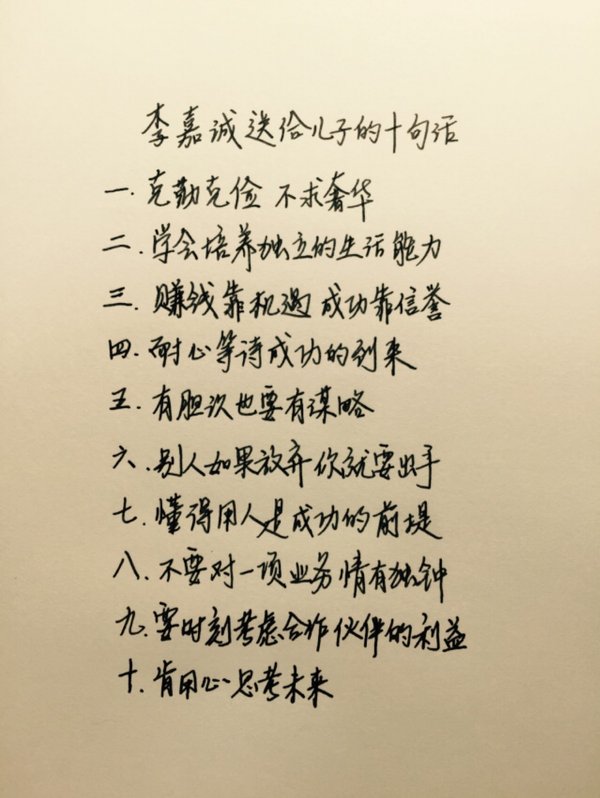 李嘉诚送给儿子的十句话
一.克勤克俭 不求奢华
二.学会培养独立的生活能力
三.赚钱靠机遇 成功靠信誉
四.耐心等待成功的到来
五.有胆识也要有谋略
六.别人如果放弃你就要出手
七.懂得用人是成功的前提
八.不要对一项业务情有独钟
九.要时刻考虑合作伙伴的利益
十.肯用心思考未来